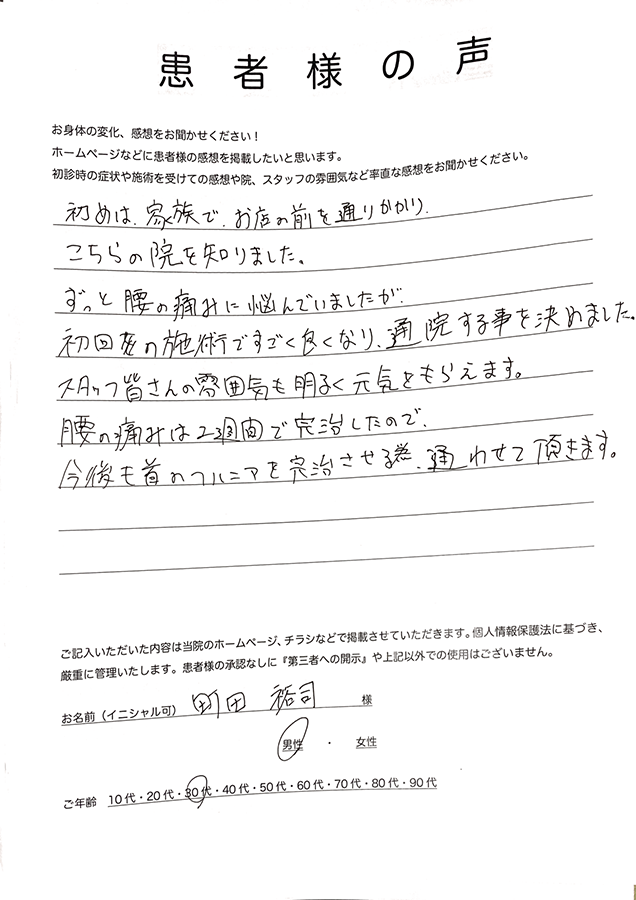 患者様の声
お身体の変化、感想をお聞かせください！
ホームページなどに患者様の感想を掲載したいと思います。
初診時の症状や施術を受けての感想や院、スタッフの雰囲気など率直な感想をお聞かせください。
初めは、家族で、お店の前を通りかかり、
こちらの院を知りました。
ずっと腰の痛みに悩んでいましたが、
初回の施術ですごく良くなり、通院する事を決めました。
スタッフ皆さんの雰囲気も明るく元気をもらえます。
腰の痛みは2週間で完治したので、
今後も首のヘルニアを完治させる為、通わせて頂きます。
ご記入いただいた内容は当院のホームページ、チラシなどで掲載させていただきます。個人情報保護法に基づき、
厳重に管理いたします。患者様の承認なしに『第三者への開示』や上記以外での使用はございません。
お名前（イニシャル可） 町田 裕司 様
男性 ・ 女性
ご年齢 10代・20代・30代・40代・50代・60代・70代・80代・90代